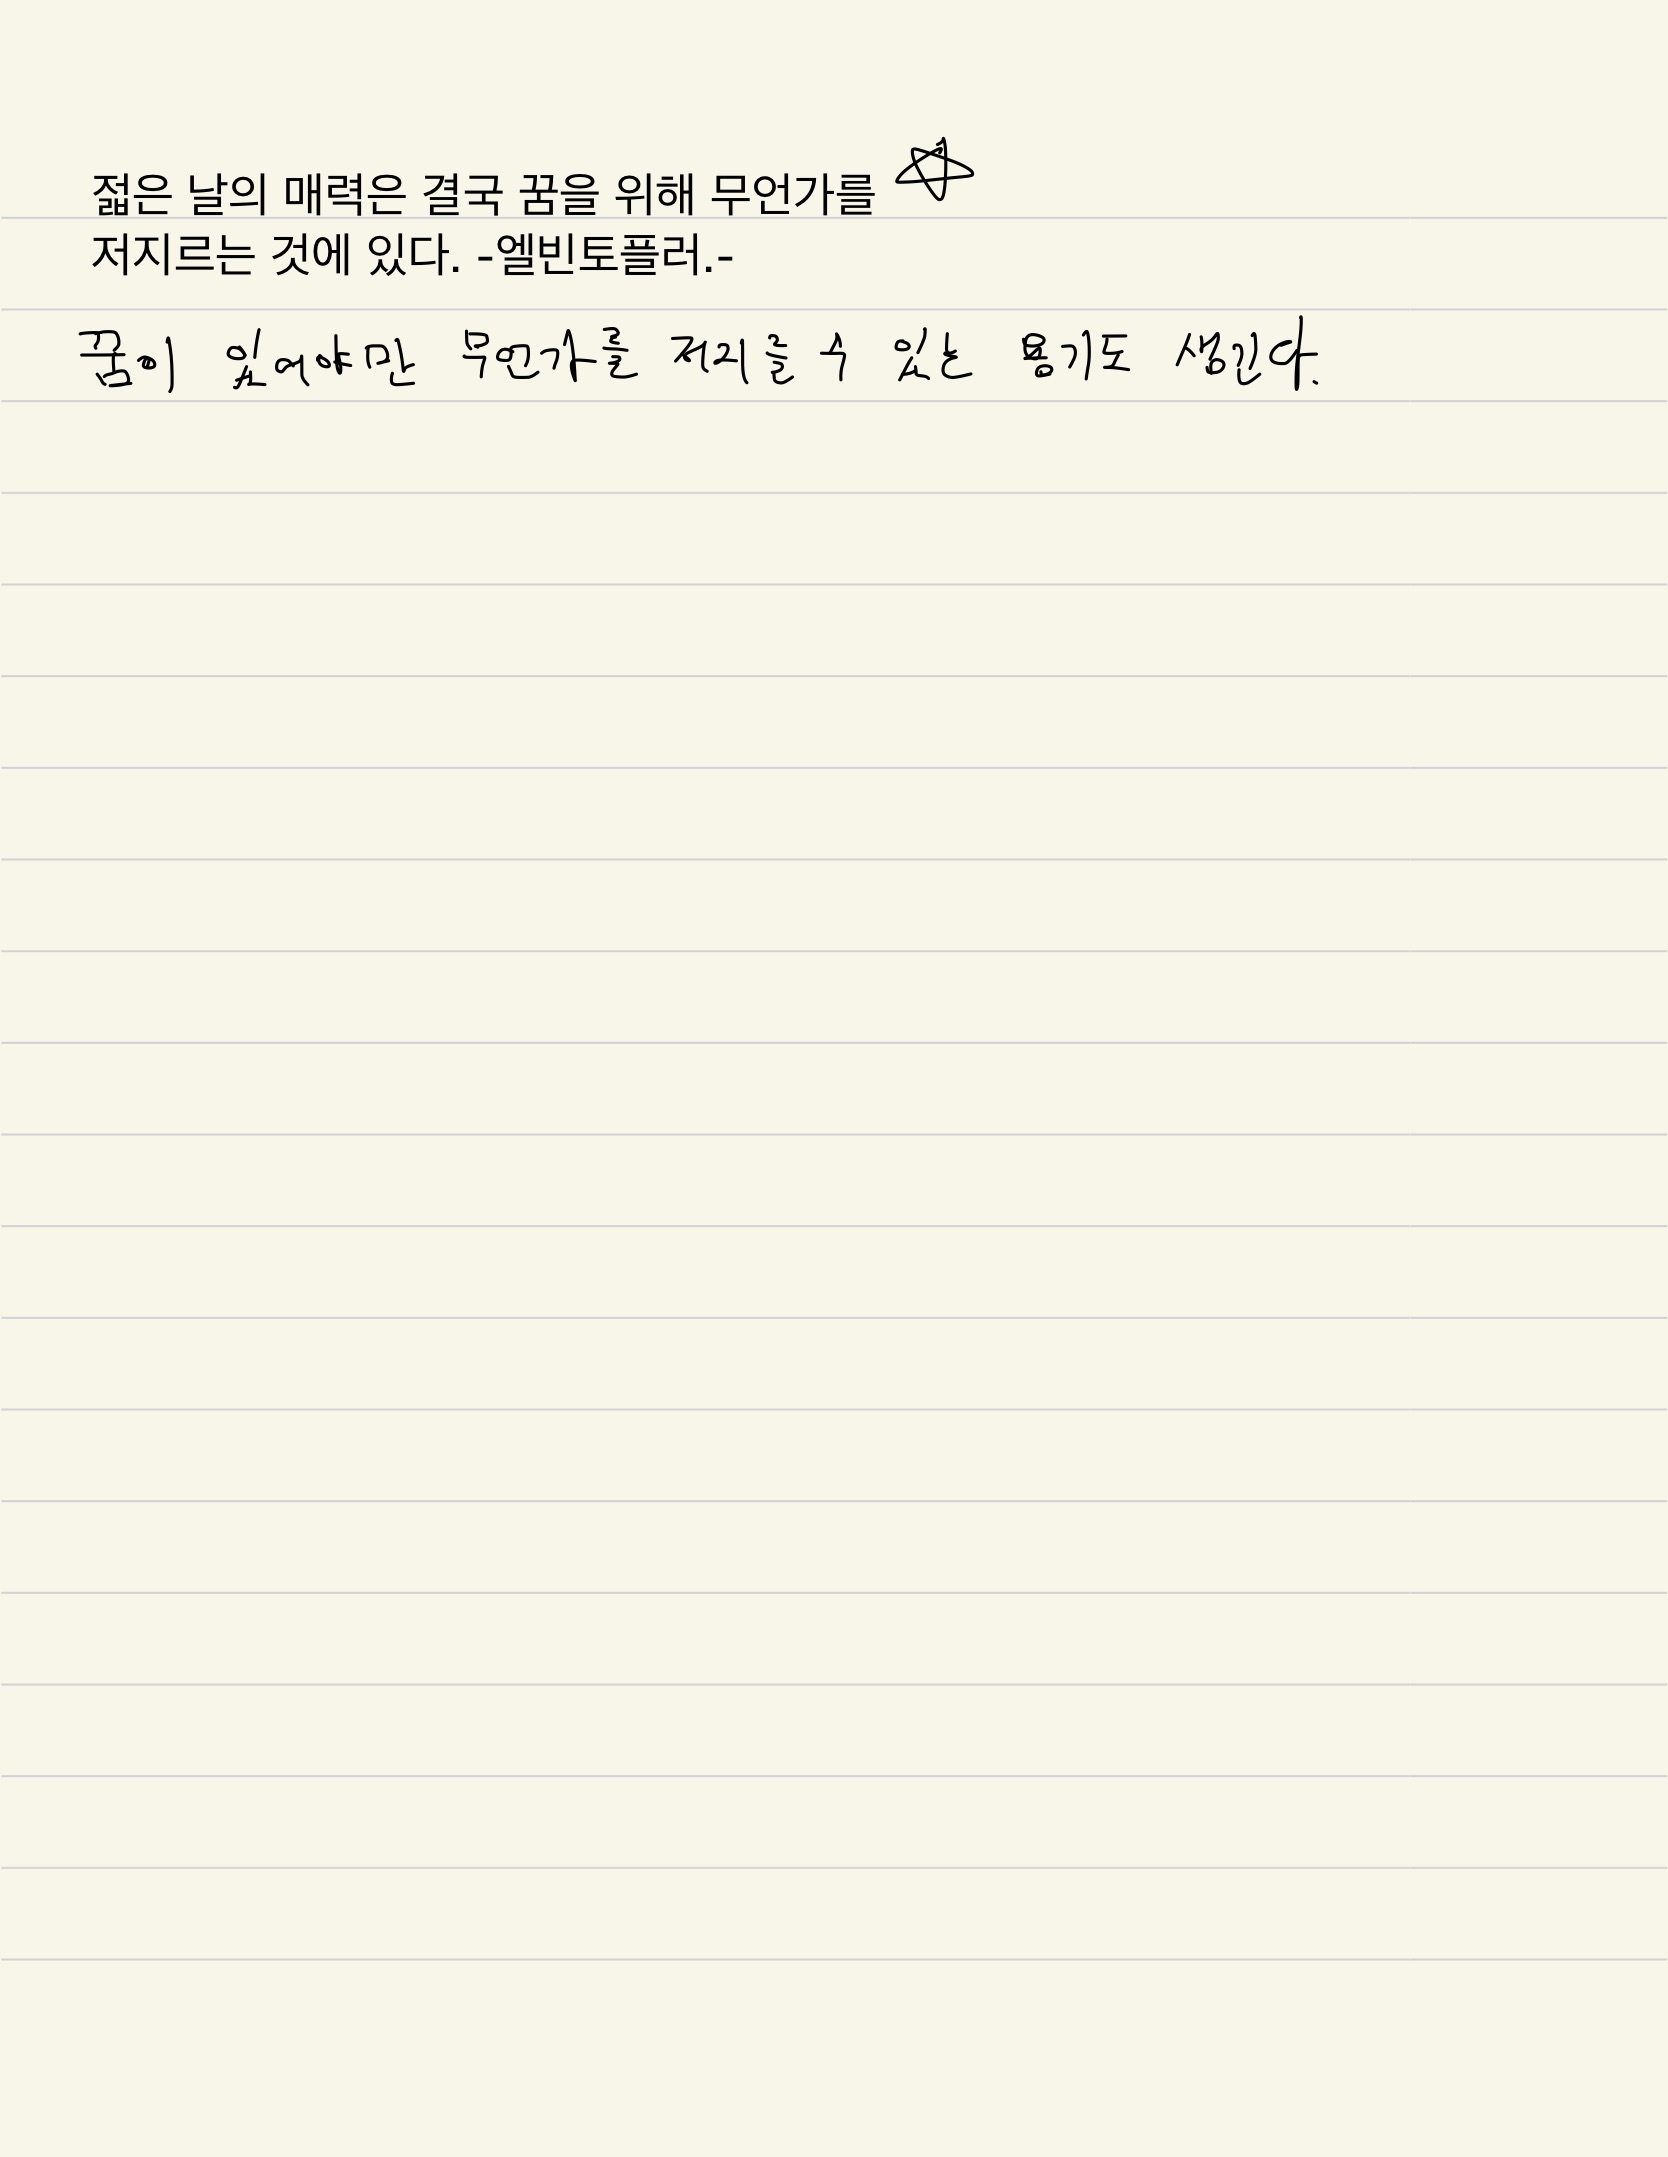 젊은 날의 매력은 결국 꿈을 위해 무언가를
저지르는 것에 있다. -엘빈토플러.-
꿈이 있어야만 무언가를 저지를 수 있는 용기도 생긴다.